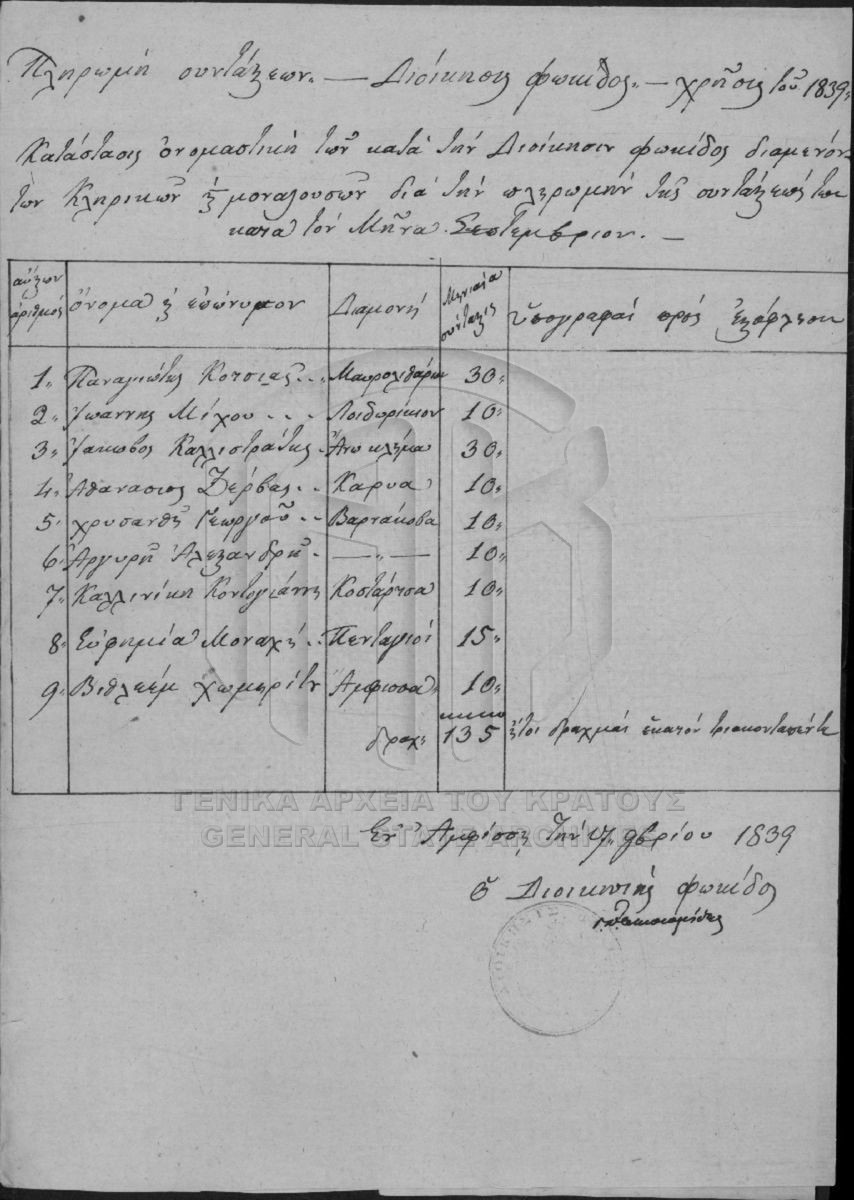 Πληρωμή συντάξεων. — Διοίκησις Φωκίδος. — χρῆσις τοῦ 1839
Κατάστασις ὀνομαστική τῶν κατά τήν Διοίκησιν Φωκίδος διαμενόν-
των Κληρικῶν ἤ μοναζουσῶν διά τήν πληρωμήν τῆς συντάξεώς των
κατά τόν Μῆνα Σεπτέμβριον. —
αὔξων ἀριθμός ὄνομα ἤ ἐπώνυμον Διαμονή Μηνιαία σύνταξις ὑπογραφαί πρός ἐξόφλησιν
1. Παναγιώτης Κοτσιας . . Μαυρολιθάρι 30
2. Ἰωάννης Μίχου . . . Λοιδωρίκιον 10
3. Ἰάκωβος Καλλιστράτης . Ἄνω κλήμα 30
4. Ἀθανάσιος Ζέρβας . . Καρυα 10
5. Χρυσάνθη Γεωργίου . . Βαρτάκοβα 10
6. Ἀργυρή Ἀλεξανδρή . — „ — 10
7. Καλλινίκη Κοντογιάννη Κοστάρτσα 10
8. Εὐφημία Μοναχή . . Πενταγιοί 15
9. Βιθλεέμ Ἄμφισσα 10
δραχ: 135 ἤτοι δραχμαί ἑκατόν τριακονταπέντε
Ἐν Ἀμφίσσῃ τήν 1839
ὁ Διοικητής Φωκίδος
ΓΕΝΙΚΑ ΑΡΧΕΙΑ ΤΟΥ ΚΡΑΤΟΥΣ
GENERAL STATE ARCHIVES